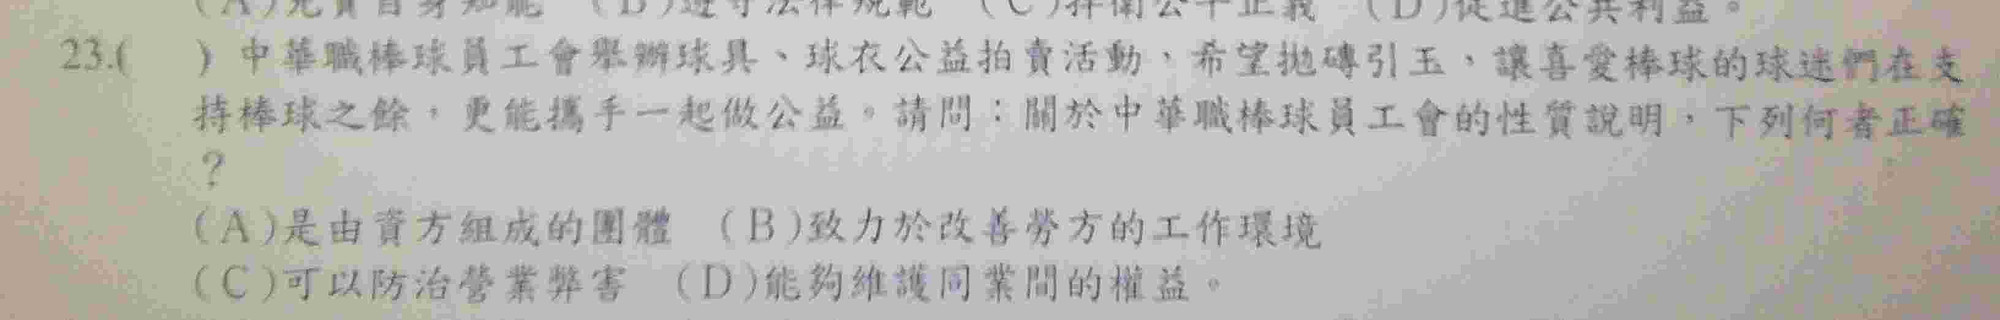 (A)充實自身知能 (B)遵守法律規範 (C)捍衛公平正義 (D)促進公共利益。
23.( ) 中華職棒球員工會舉辦球具、球衣公益拍賣活動，希望拋磚引玉，讓喜愛棒球的球迷們在支
持棒球之餘，更能攜手一起做公益。請問：關於中華職棒球員工會的性質說明，下列何者正確
？
(A)是由資方組成的團體 (B)致力於改善勞方的工作環境
(C)可以防治營業弊害 (D)能夠維護同業間的權益。